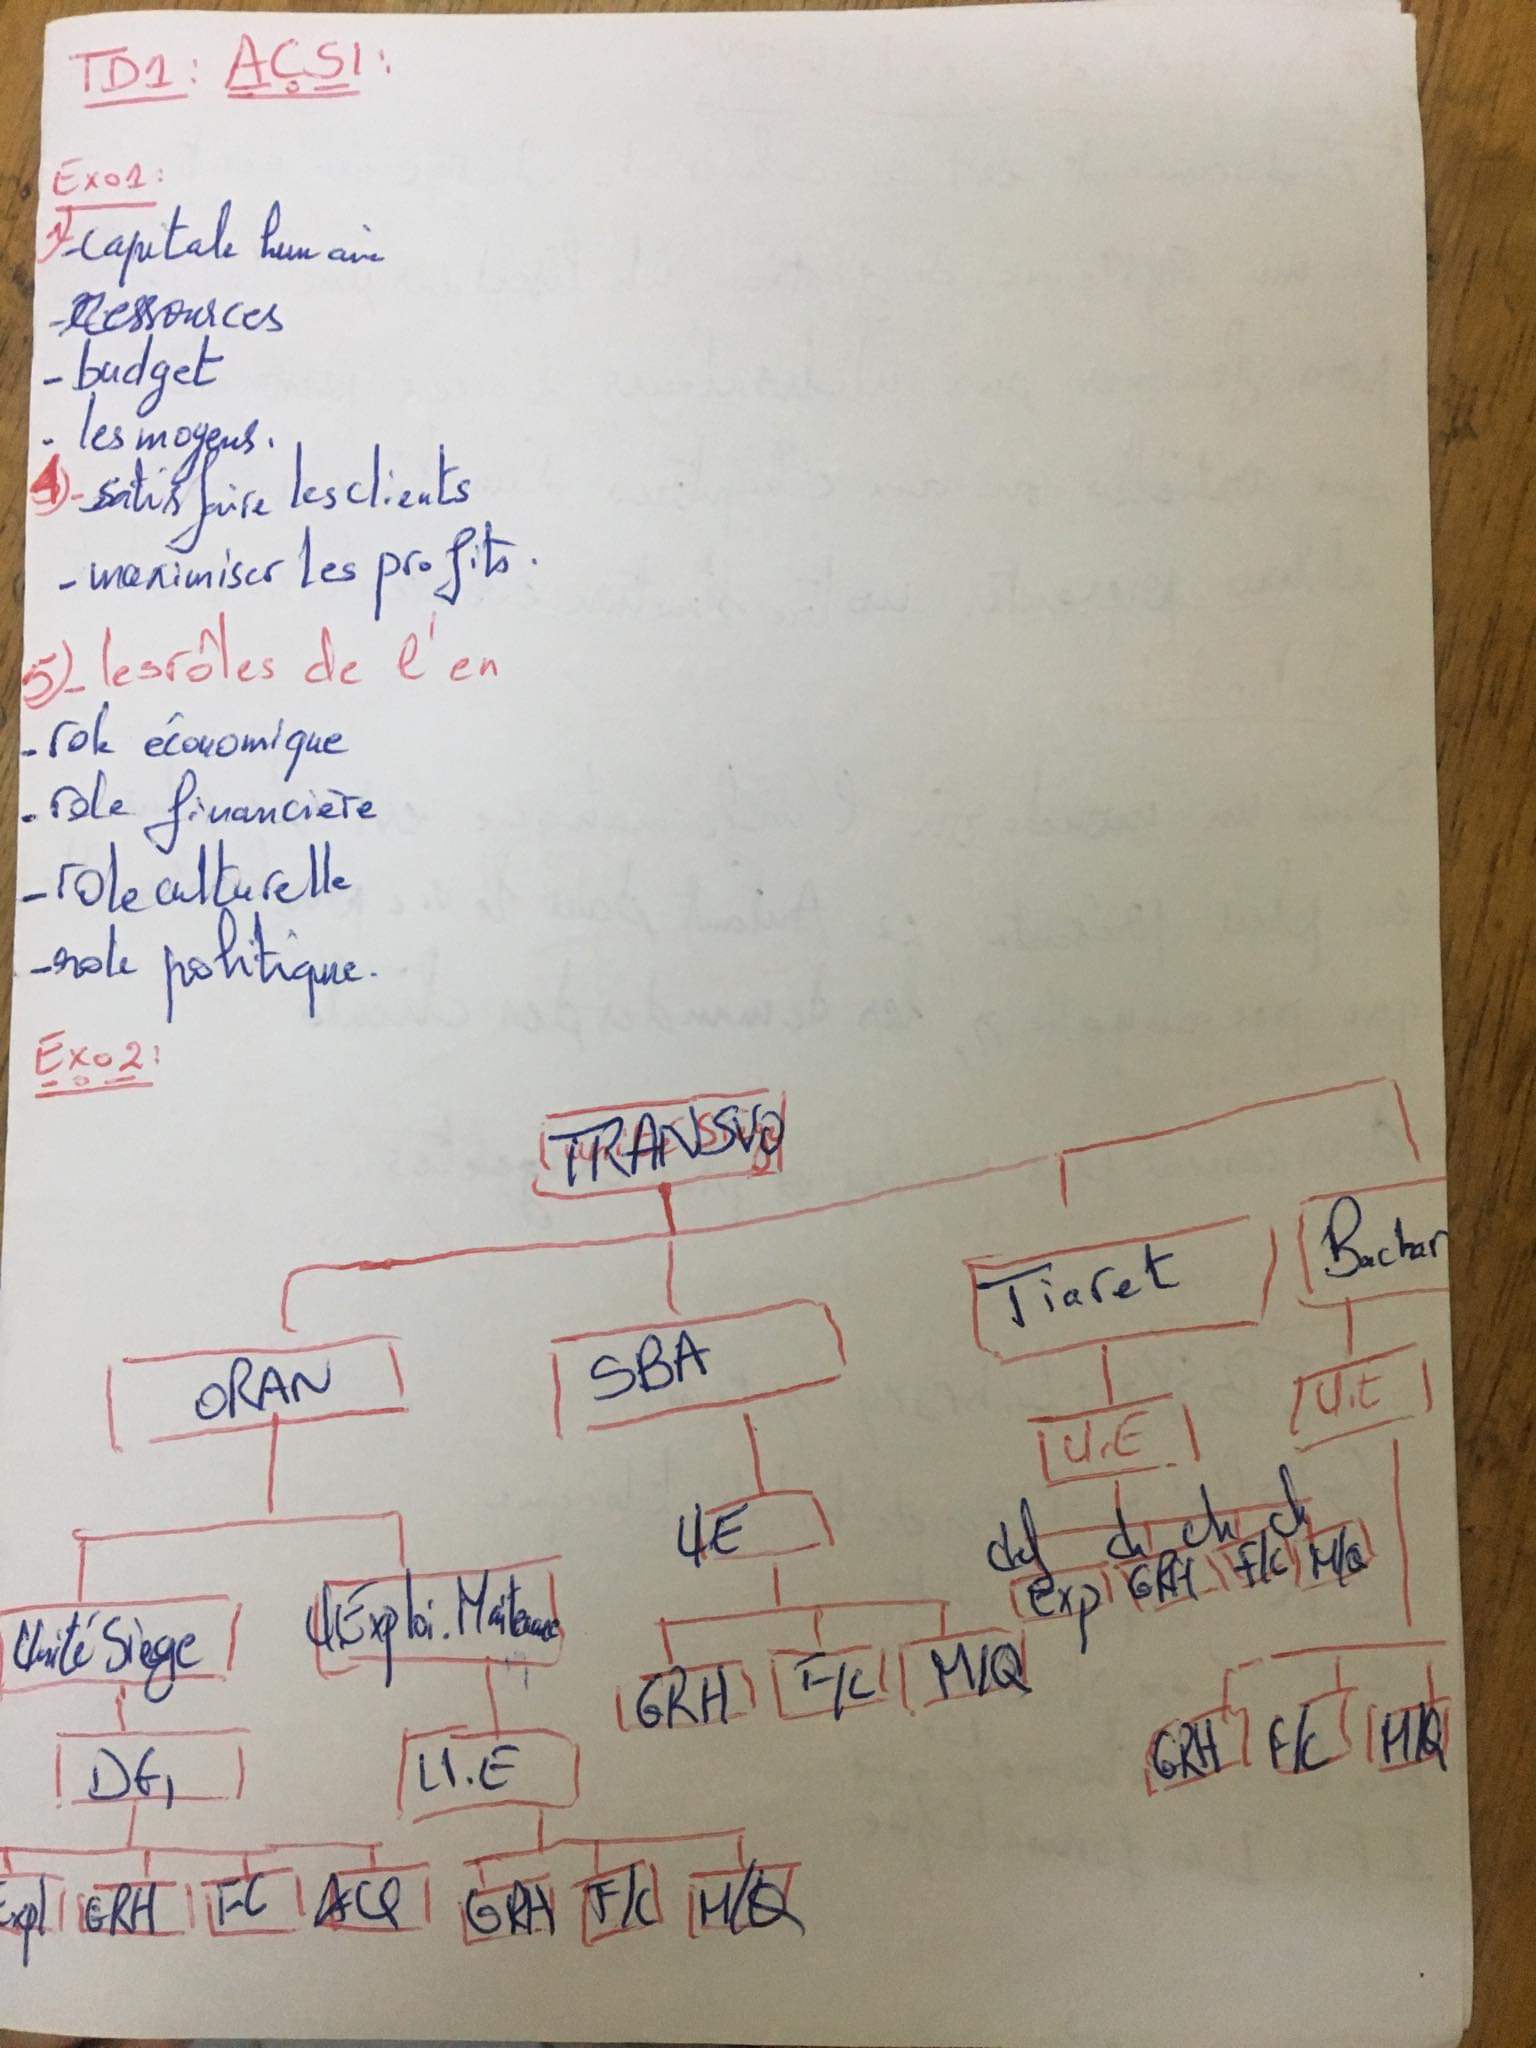 TD1: ACSI:
Exo1:
1)- capitale humain
- Ressources
- budget
- les moyens.
4)- satisfaire les clients
- maximiser les profits.
5)- les rôles de l'en
- role économique
- role financière
- role culturelle
- role politique.
Exo2:
TRANSVO
ORAN SBA Tiaret Bachar
Unité Siège UExploi. UE U.E U.E
DG U.E
GRH F/C M/Q
Exp GRH F/C M/Q
GRH F/C M/Q
Expl GRH FC ACQ GRH F/C M/Q